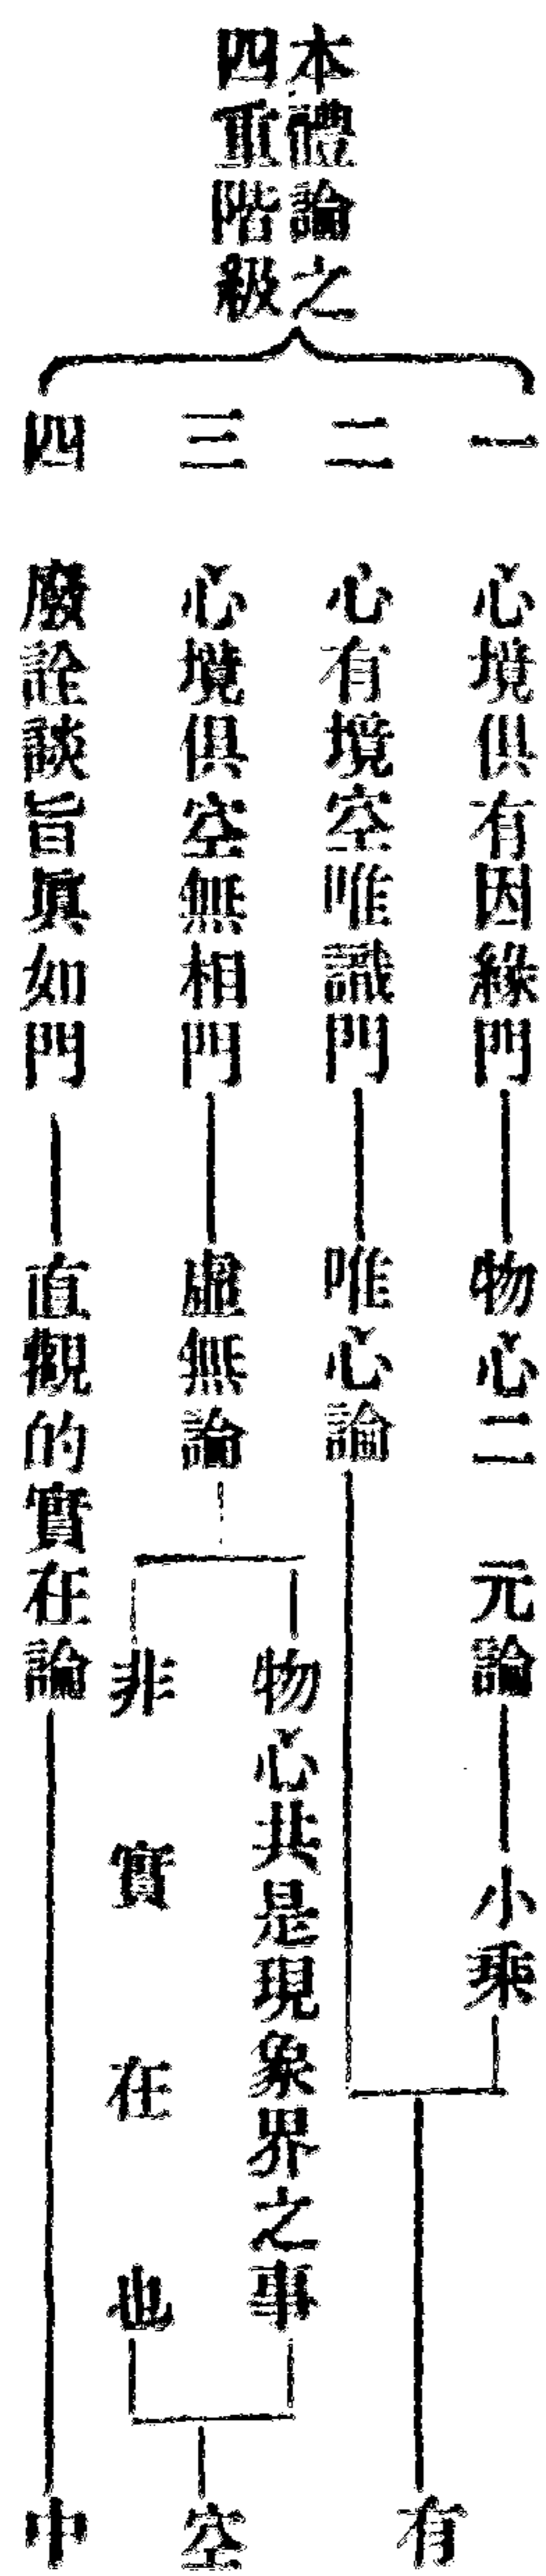 本體論之
四重階級
一 心境俱有因緣門 物心二元論 小乘
二 心有境空唯識門 唯心論
有
三 心境俱空無相門 虛無論
物心共是現象界之事
非實在也
空
四 廢詮談旨眞如門 直觀的實在論 中